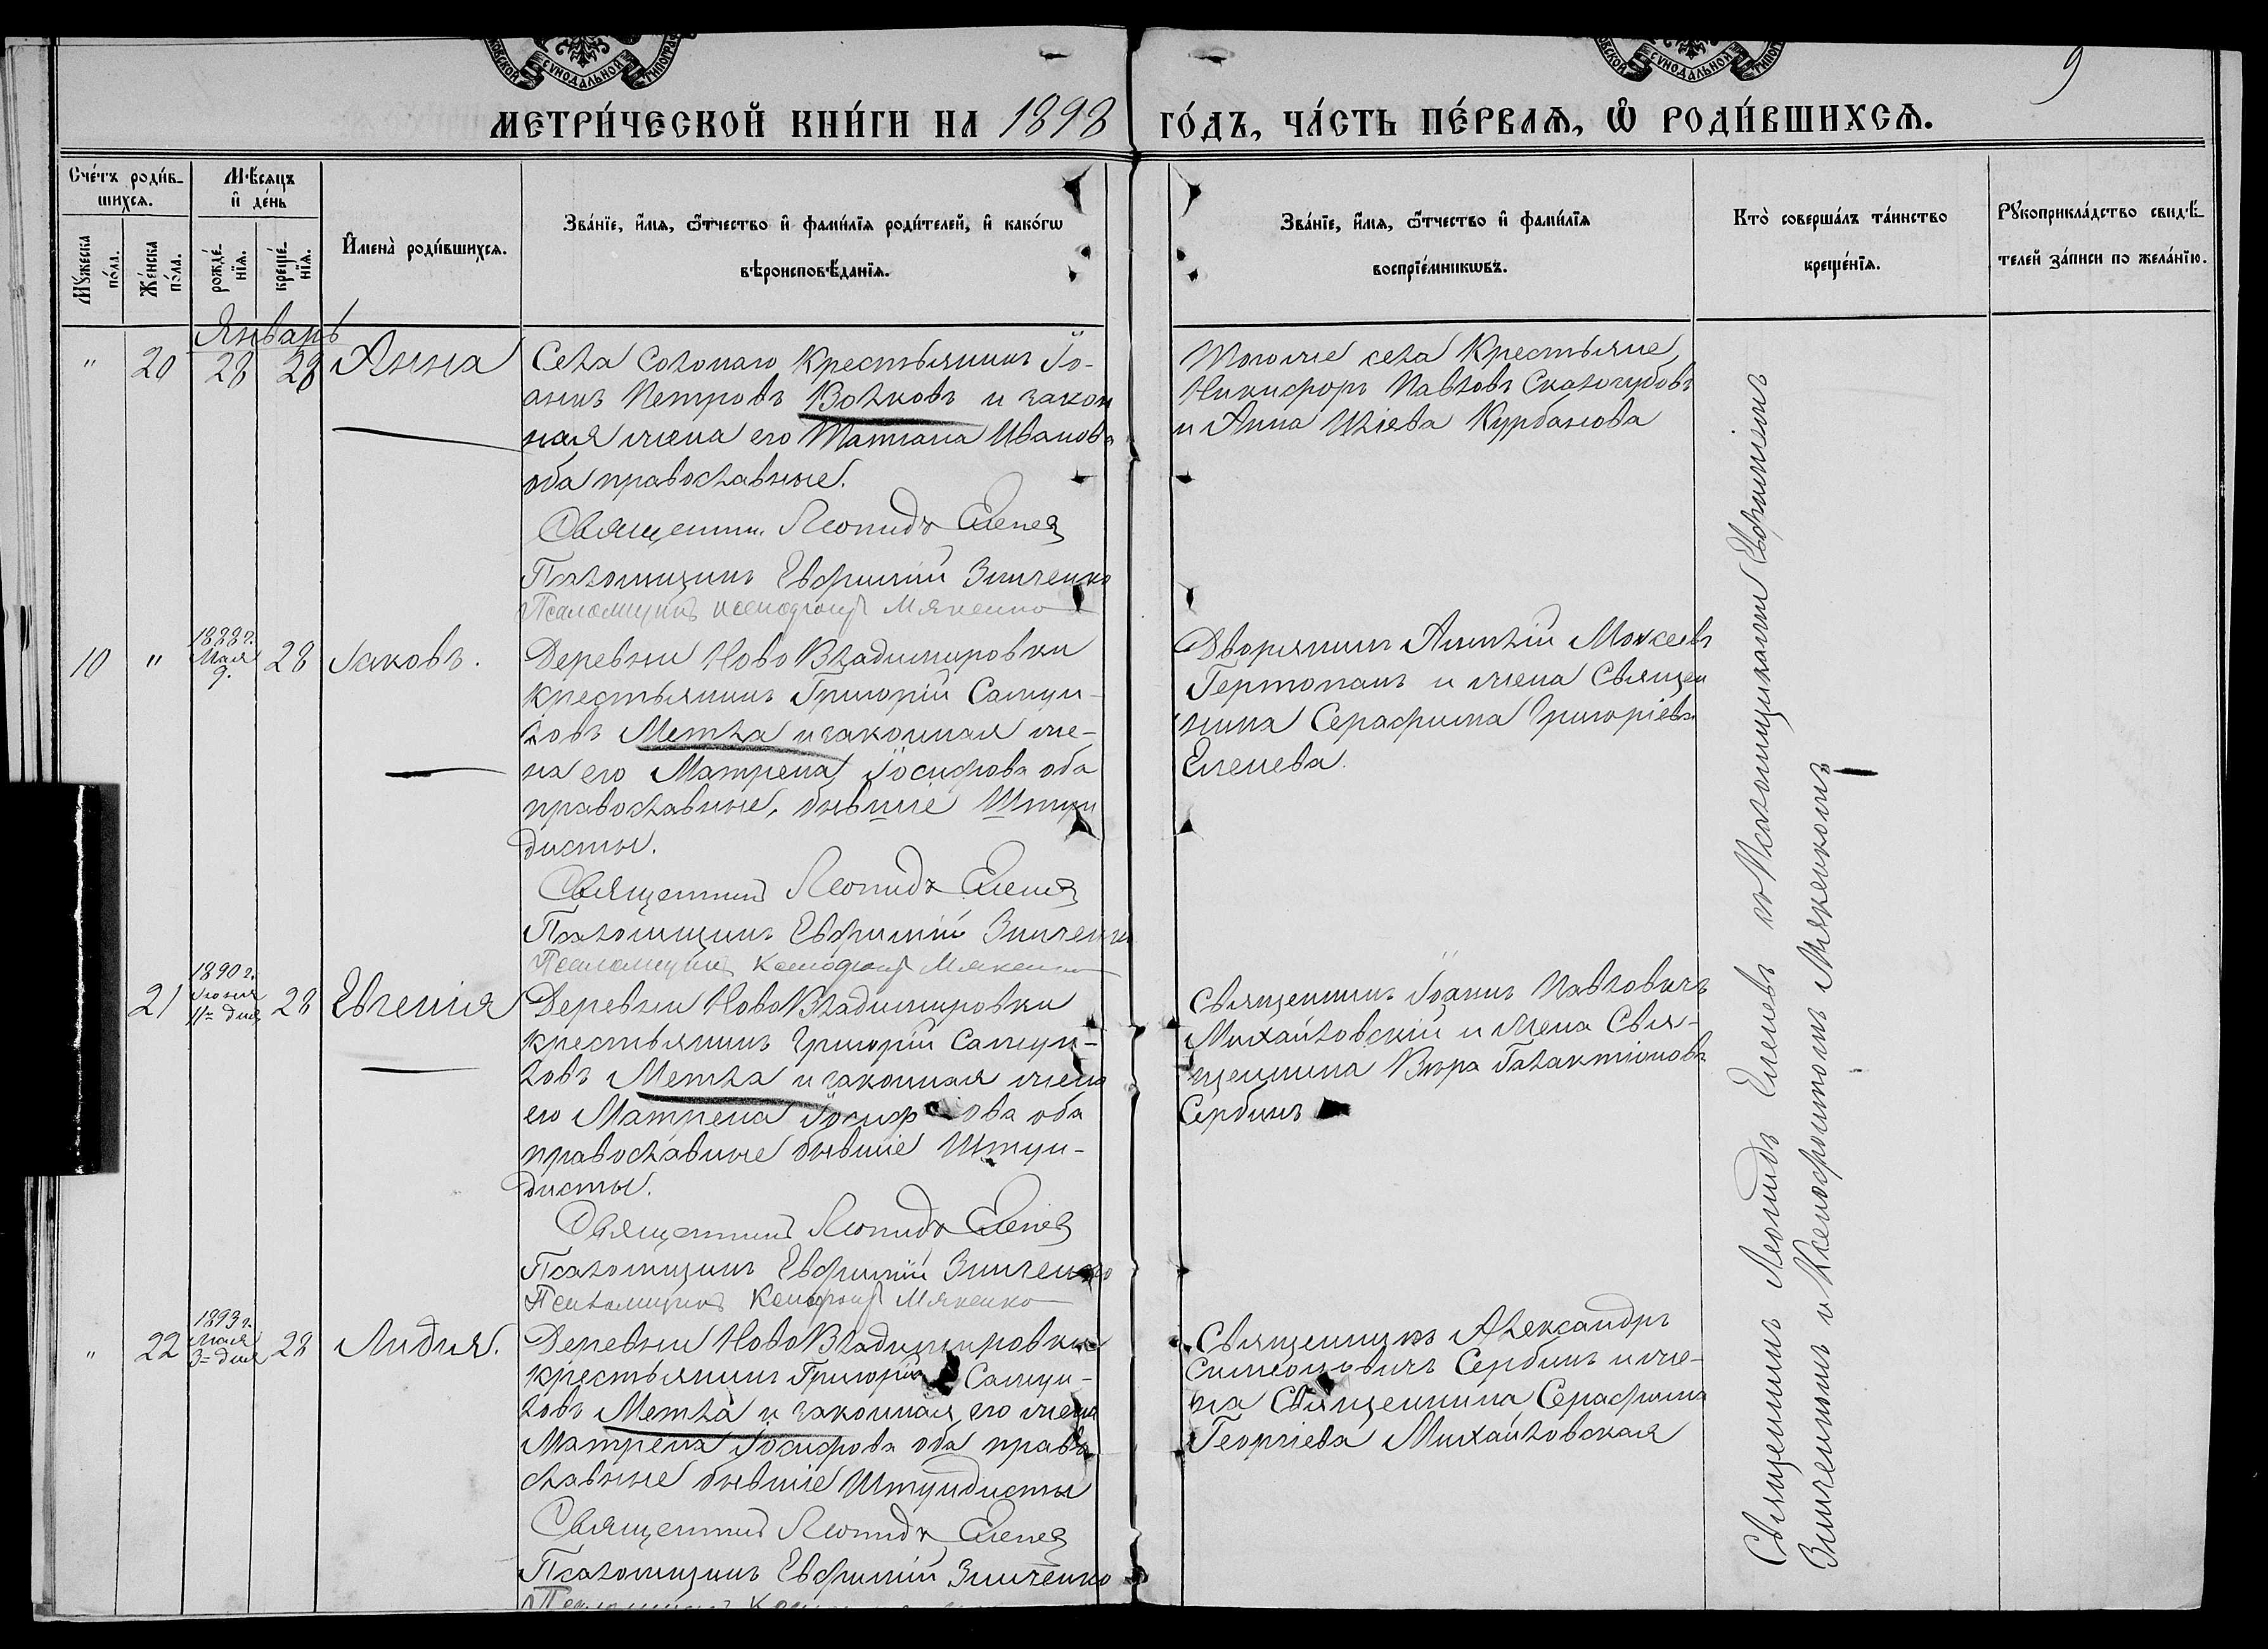 МОСКОВСКОЙ СѴНОДАЛЬНОЙ ТИПОГРАФ
МОСКОВСКОЙ СѴНОДАЛЬНОЙ ТИПОГРАФ
9
МЕТРИ́ЧЕСКОЙ КНИ́ГИ НА 1898 ГО́ДЪ, ЧА́СТЬ ПЕ́РВАѦ, Ѽ РОДИ́ВШИХСѦ.
Сче́тъ роди́в-
шихсѧ.
Мꙋ́жеска
по́ла.
Же́нска
по́ла.
Мѣ́сѧцъ
и҆ де́нь
рожде́-
нїѧ.
креще́-
нїѧ.
И҆мена̀ роди́вшихсѧ.
Зва́нїе, и҆́мѧ, ѻ҆́тчество и҆ фами́лїѧ роди́телей, и҆ како́гѡ
вѣроисповѣ́данїѧ.
Зва́нїе, и҆́мѧ, ѻ҆́тчество и҆ фами́лїѧ
воспрїе́мникѡвъ.
Кто̀ соверша́лъ та́инство
креще́нїѧ.
Рꙋкоприкла́дство свидѣ́-
телей за́писи по жела́нїю.
Январь
" 20 28 28 Анна
Села Солонаго Крестьянинъ Іо-
аннъ Петровъ Волковъ и закон
ная жена его Татіана Иванова
оба православные.
Священни. Леонидъ Еленев
Псаломщикъ Евфимій Зинченко
Псаломщикъ Ксенофонт Мякенко
Тогоже села Крестьяне,
Никифоръ Павловъ Скалозубовъ
и Анна Иліева Курбанова
10 " 1888 г. Мая 9. 28 Іаковъ.
Деревни Ново Владимировки
крестьянинъ Григорій Самуи-
ловъ Метла и законная же-
на его Матрена Іосифова оба
православные, бывшіе Штун
дисты.
Священникъ Леонидъ Еленев
Псаломщикъ Евфимій Зинченко
Псаломщикъ Ксенофонт Мякенко
Дворянинъ Моисеевъ
и жена Священ
ника Серафима Григоріева
Еленева.
21 1890 г. Іюня 11= дня 28 Евгенія
Деревни Ново Владимировки
крестьянинъ Григорій Самуи-
ловъ Метла и законная жена
его Матрена Іосифова оба
православные бывшіе Штун-
дисты.
Священникъ Леонидъ Еленев
Псаломщикъ Евфимій Зинченко
Псаломщикъ Ксенофонт Мякенко
Священникъ Іоаннъ Павловичъ
Михайловскій и жена Свя-
щенника Вѣра Галактіонова
Сербинъ
" 22 1893 г. Мая 3= дня 28 Лидия.
Деревни Ново Владимировки
крестьянинъ Григорій Самуи-
ловъ Метла и законная его жена
Матрена Іосифова оба право
славные бывшіе Штундисты
Священникъ Леонидъ Еленев
Псаломщикъ Евфимій Зинченко
Священникъ Александръ
Симеоновичъ Сербинъ и же-
на Священника Серафима
Георгіева Михайловская
Священникъ Леонидъ Еленевъ со Псаломщиками Евфиміемъ
Зинченкомъ и Ксенофонтомъ Мякенкомъ